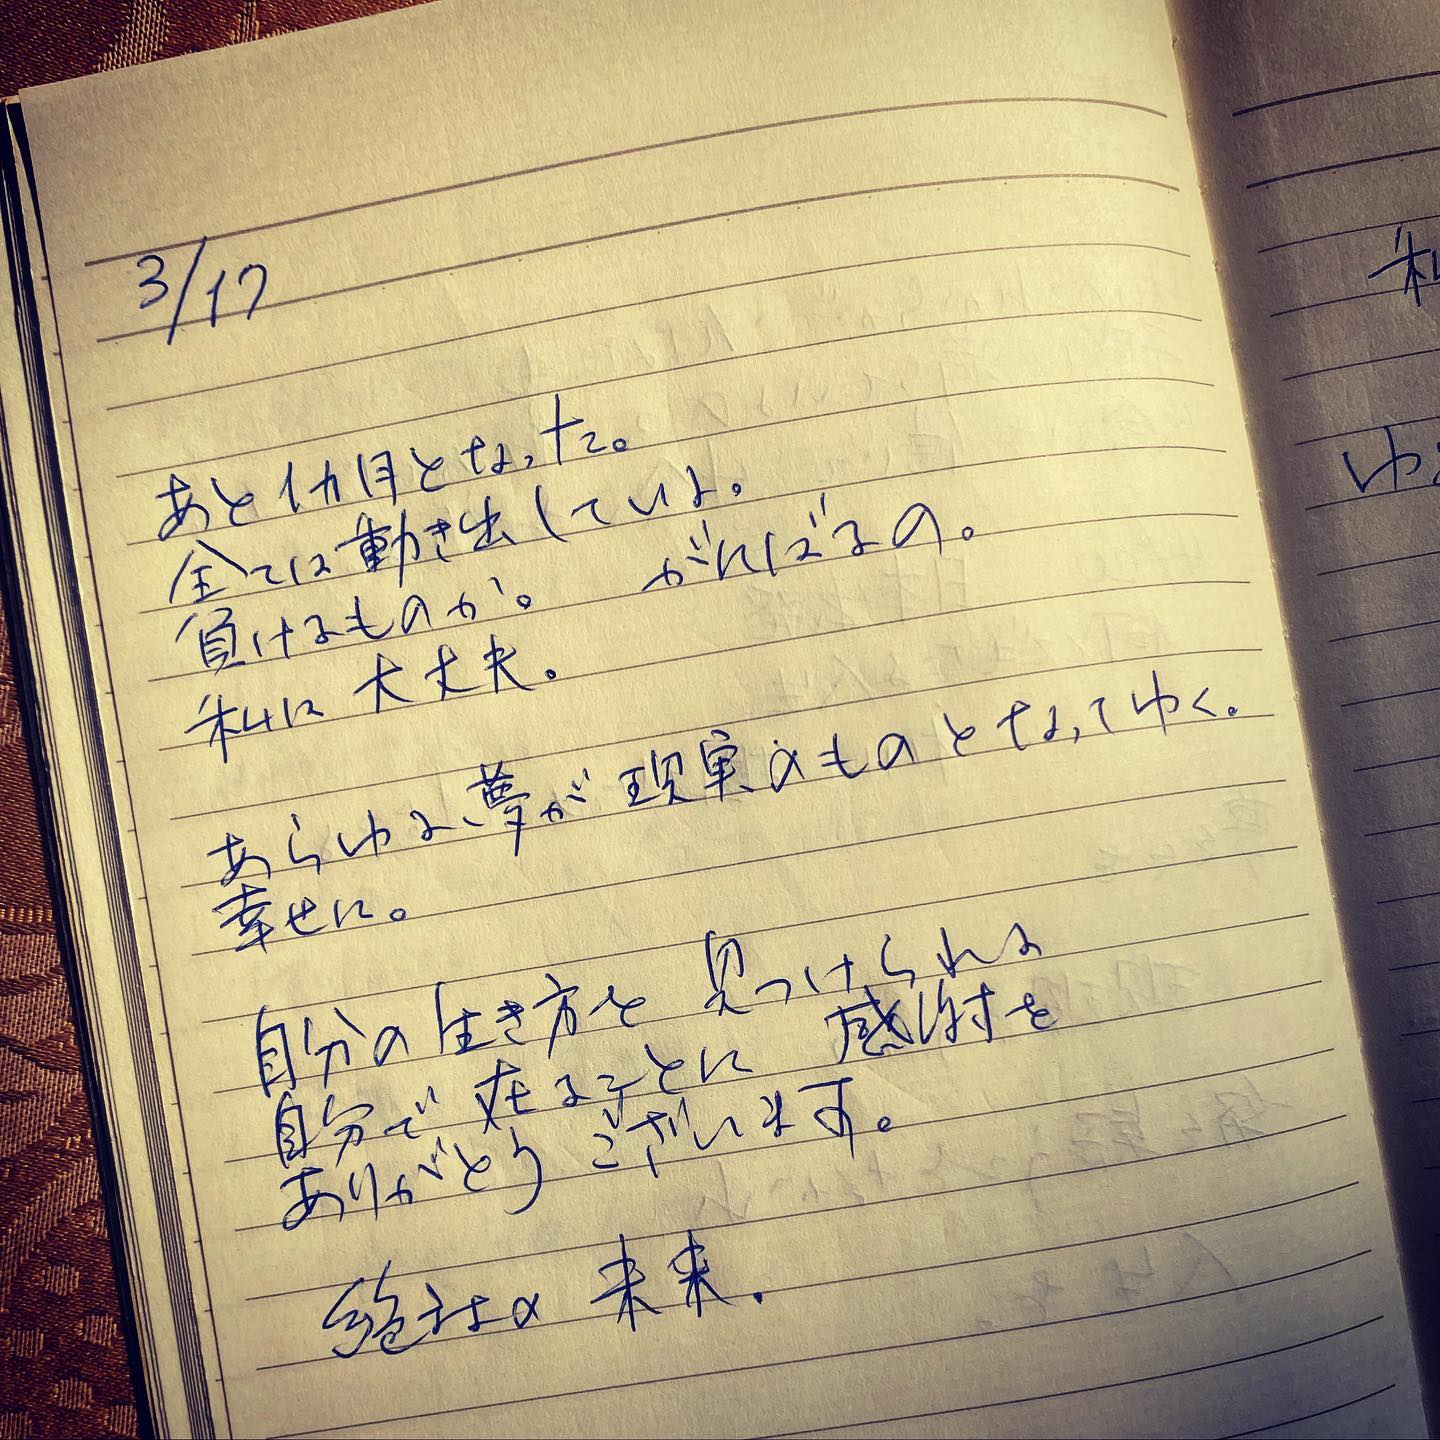 3/17
あと1カ月となった。
全ては動き出している。
負けるものか。 がんばるの。
私は大丈夫。
あらゆる夢が現実のものとなってゆく。
幸せに。
自分の生き方を見つけられる
自分で在ることに 感謝を
ありがとうございます。
絶対の未来.
私
ゆ